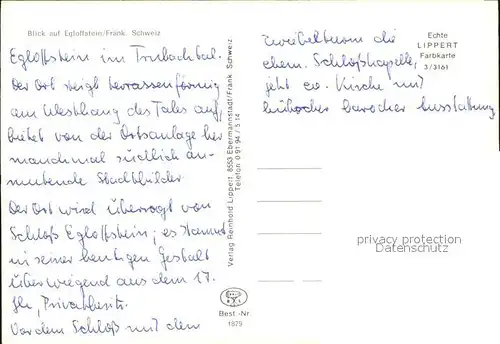 Blick auf Egloffstein/Fränk. Schweiz
Egloffstein im Trubachtal.
Der Ort steigt terrassenförmig
am Westhang des Tales auf,
bietet von der Ortsanlage her
manchmal südlich an-
mutende Stadtbilder.
Der Ort wird überragt von
Schloß Egloffstein; es stammt
in seiner heutigen Gestalt
überwiegend aus dem 17.
Jh., Privatbesitz.
Vor dem Schloß mit dem
Zwiebelturm die
ehem. Schloßkapelle,
jetzt ev. Kirche mit
hübscher barocker Ausstattung
Verlag Reinhold Lippert, 8553 Ebermannstadt/Fränk. Schweiz
Telefon 0 91 94 / 5 14
Best.-Nr.
1879
Echte
LIPPERT
Farbkarte
3/3161
privacy protection
watermark